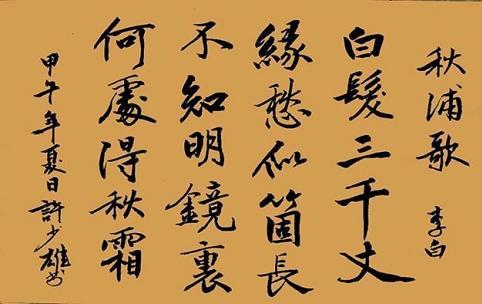 秋浦歌 李白
白髮三千丈
緣愁似箇長
不知明鏡裏
何處得秋霜
甲午年夏日許少雄書